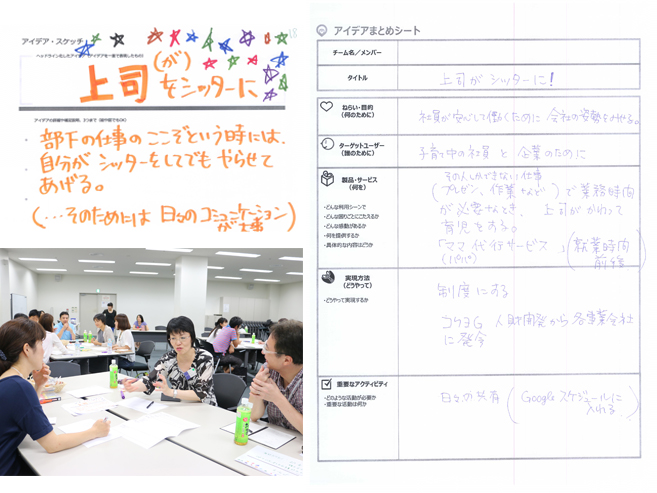 アイデア・スケッチ
(が)
上司をシッターに
部下の仕事の ここぞという時には、
自分が シッターをしてでも やらせて
あげる。
(…そのためには 日々のコミュニケーションが大事)
アイデアまとめシート
チーム名／メンバー
タイトル
上司が シッターに!
ねらい・目的
(何のために)
社員が安心して働くために 会社の姿勢をみせる。
ターゲットユーザー
(誰のために)
子育て中の社員 と 企業のために
製品・サービス
(何を)
・どんな利用シーンで
・どんな困りごとにこたえるか
・どんな感動があるか
・何を提供するか
・具体的な内容はどうか
その人しかできない仕事
(プレゼン、作業など) で 業務時間
が必要なとき、上司が かわって
育児をする。
「ママ 代行サービス」(就業時間
(パパ) 前後)
実現方法
(どうやって)
・どうやって実現するか
制度にする
コクヨG 人財開発から各事業会社
に発令
重要なアクティビティ
・どのような活動が必要か
・重要な活動は何か
日々の共有 (Google スケジュールに
入れる)